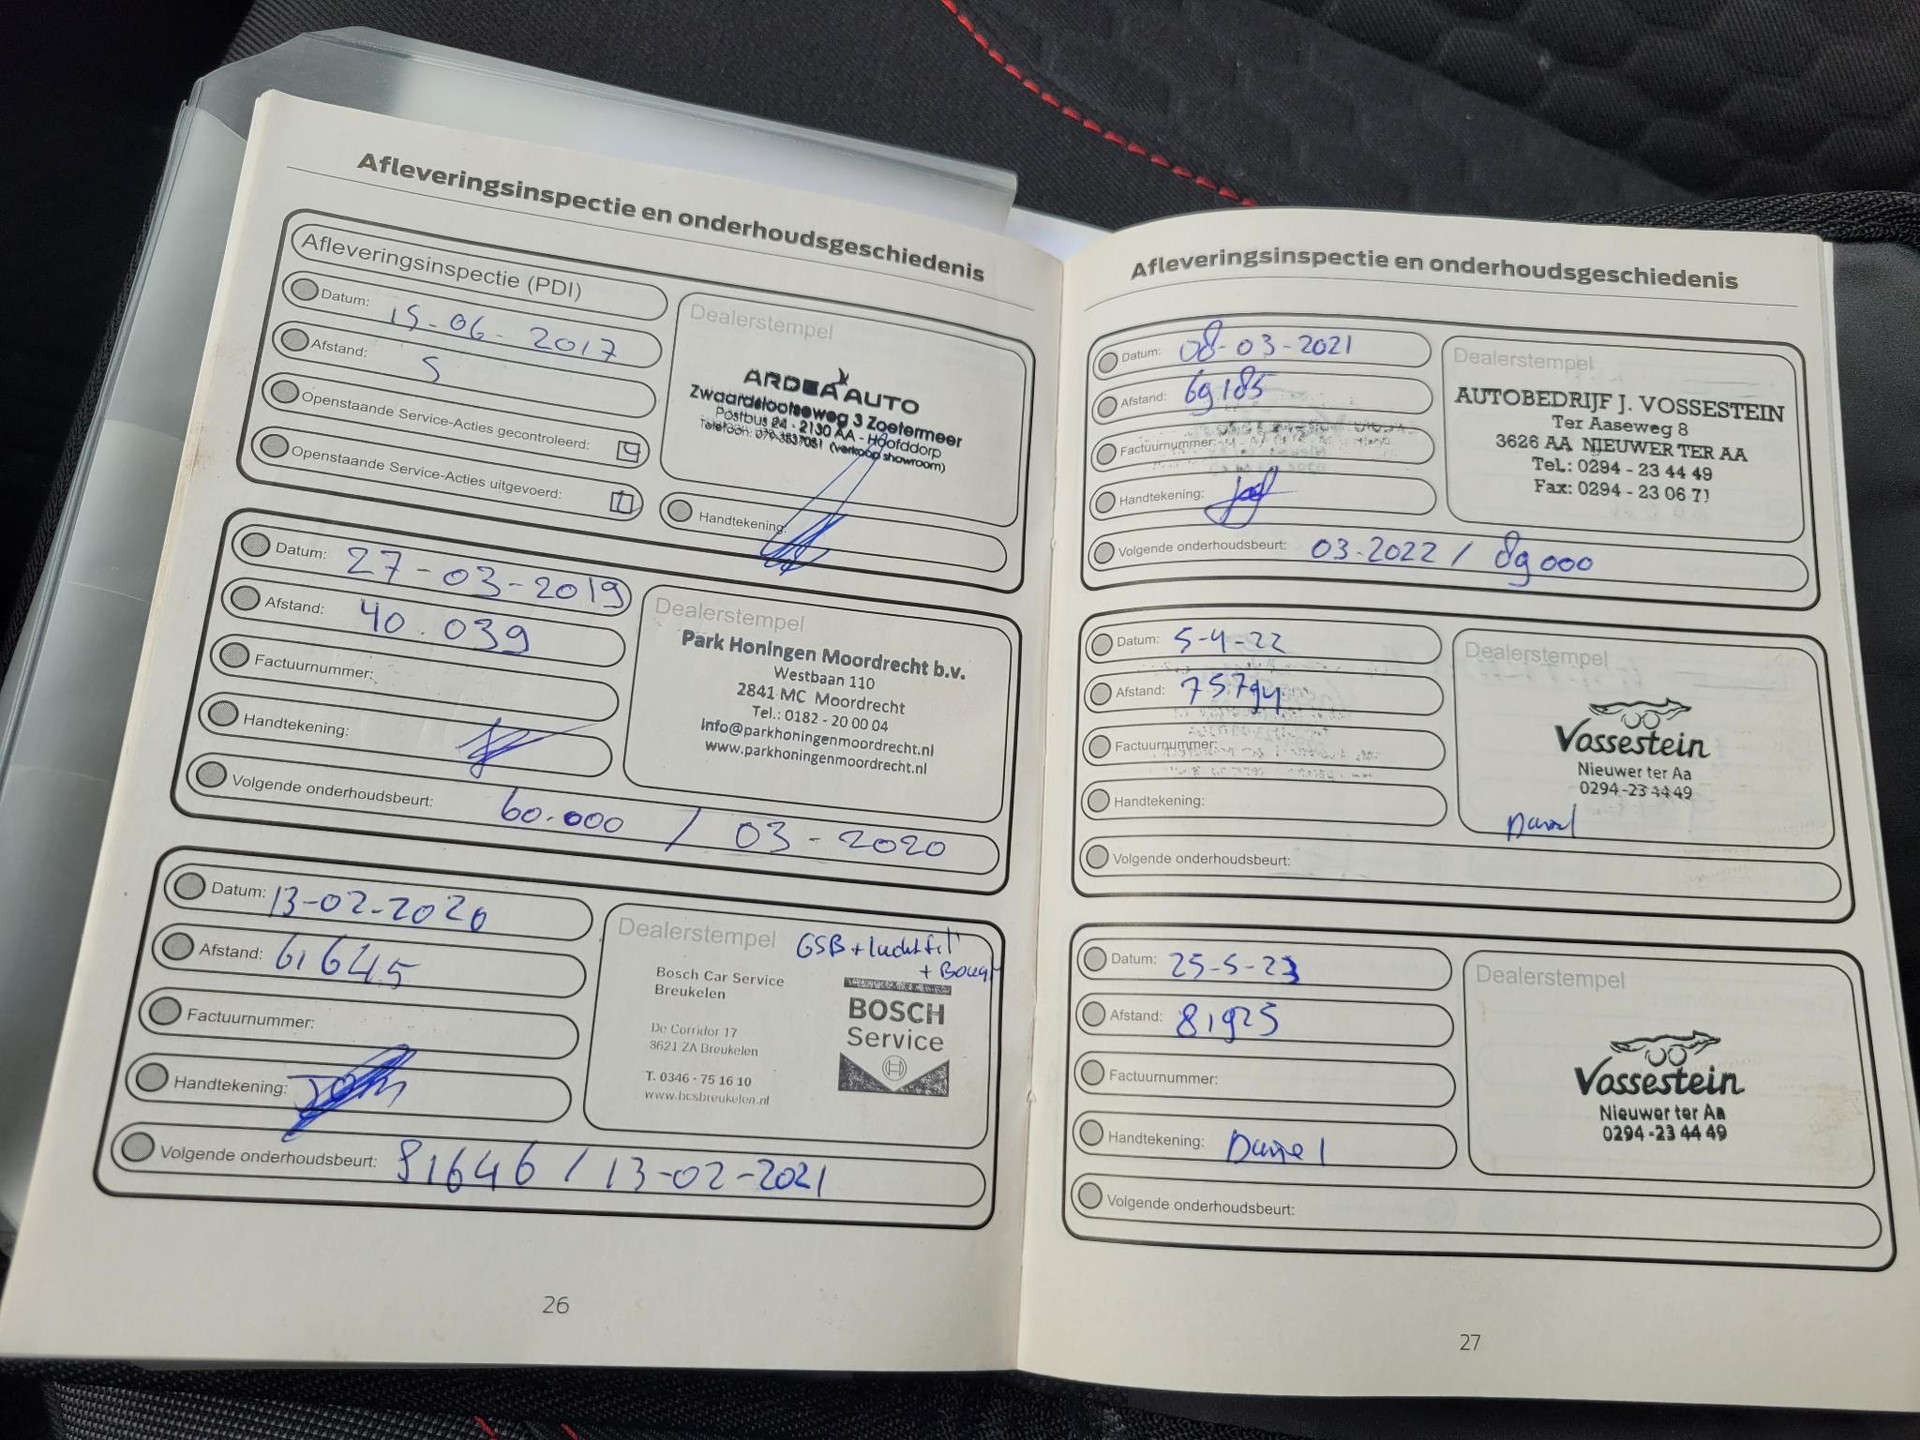 Afleveringsinspectie en onderhoudsgeschiedenis
Afleveringsinspectie (PDI)
Datum: 15-06-2017
Afstand: 5
Openstaande Service-Acties gecontroleerd:
Openstaande Service-Acties uitgevoerd:
Dealerstempel
ARDEA AUTO
Zwaardslootseweg 3 Zoetermeer
Postbus 24 - 2130 AA - Hoofddorp
Telefoon: 079-3637051 (verkoop showroom)
Handtekening:
Datum: 27-03-2019
Afstand: 40.039
Factuurnummer:
Handtekening:
Volgende onderhoudsbeurt: 60.000 / 03-2020
Dealerstempel
Park Honingen Moordrecht b.v.
Westbaan 110
2841 MC Moordrecht
Tel.: 0182 - 20 00 04
info@parkhoningenmoordrecht.nl
www.parkhoningenmoordrecht.nl
Datum: 13-02-2020
Afstand: 61645
Factuurnummer:
Handtekening:
Volgende onderhoudsbeurt: 81646 / 13-02-2021
Dealerstempel
GSB + luchtfil
+ Bougi
Bosch Car Service
Breukelen
De Corridor 17
3621 ZA Breukelen
T. 0346 - 75 16 10
www.bcsbreukelen.nl
BOSCH
Service
26
Afleveringsinspectie en onderhoudsgeschiedenis
Datum: 08-03-2021
Afstand: 69185
Factuurnummer:
Handtekening:
Volgende onderhoudsbeurt: 03-2022 / 89000
Dealerstempel
AUTOBEDRIJF J. VOSSESTEIN
Ter Aaseweg 8
3626 AA NIEUWER TER AA
Tel.: 0294 - 23 44 49
Fax: 0294 - 23 06 71
Datum: 5-4-22
Afstand: 75794
Factuurnummer:
Handtekening:
Volgende onderhoudsbeurt:
Dealerstempel
Vossestein
Nieuwer ter Aa
0294-23 44 49
Datum: 25-5-23
Afstand: 81925
Factuurnummer:
Handtekening: Daniel
Volgende onderhoudsbeurt:
Dealerstempel
Vossestein
Nieuwer ter Aa
0294-23 44 49
27